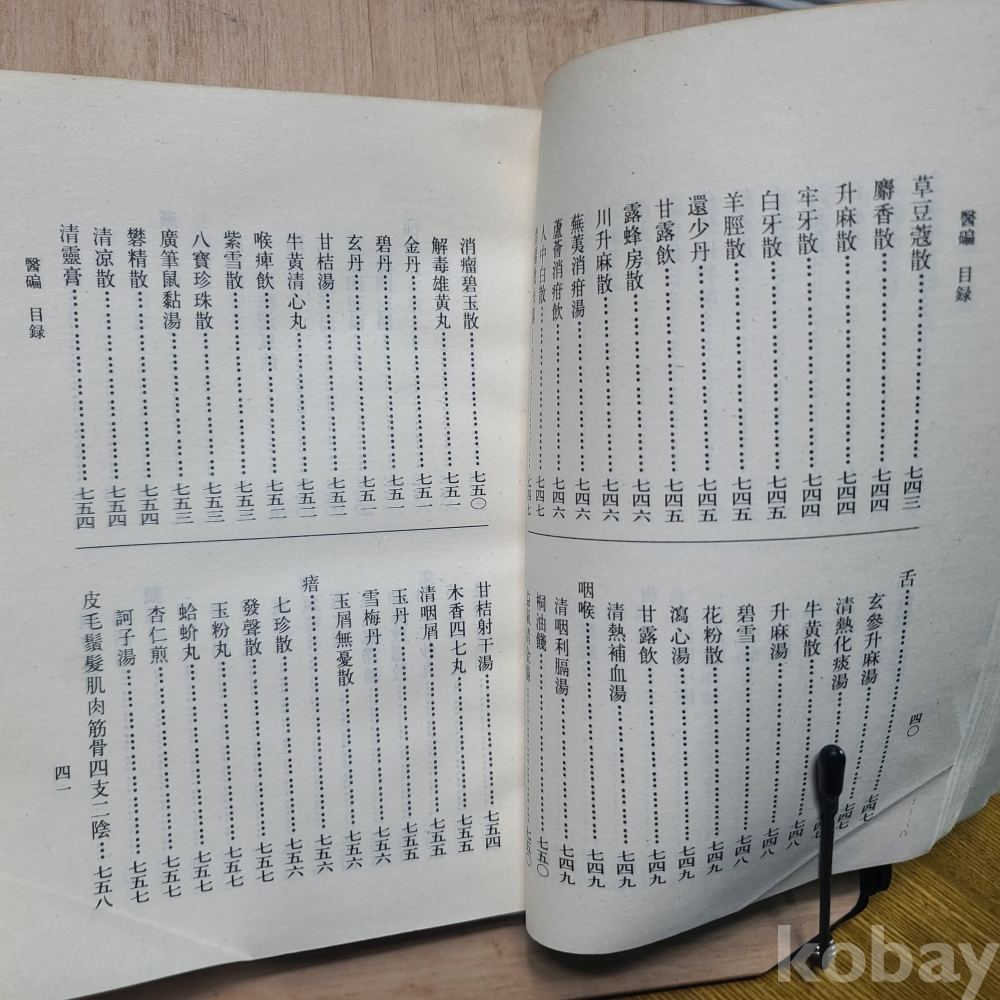 醫碥 目録
四〇
草豆蔻散……七四三
麝香散……七四四
升麻散……七四四
牢牙散……七四四
白牙散……七四五
羊脛散……七四五
還少丹……七四五
甘露飲……七四五
露蜂房散……七四六
川升麻散……七四六
蕪荑消疳湯……七四六
蘆薈消疳飲……七四六
人中白散……七四七
……七四七
舌……七四七
玄參升麻湯……七四七
清熱化痰湯……七四七
牛黃散……七四八
升麻湯……七四八
碧雪……七四八
花粉散……七四九
瀉心湯……七四九
甘露飲……七四九
清熱補血湯……七四九
咽喉……七四九
清咽利膈湯……七四九
桐油餞……七五〇
……七五〇
消瘤碧玉散……七五〇
解毒雄黄丸……七五一
金丹……七五一
碧丹……七五一
玄丹……七五一
甘桔湯……七五二
牛黃清心丸……七五二
喉痺飲……七五二
紫雪散……七五三
八寶珍珠散……七五三
廣筆鼠黏湯……七五三
礬精散……七五四
清凉散……七五四
清靈膏……七五四
甘桔射干湯……七五四
木香四七丸……七五五
清咽屑……七五五
玉丹……七五五
雪梅丹……七五六
玉屑無憂散……七五六
瘖……七五六
七珍散……七五六
發聲散……七五七
玉粉丸……七五七
蛤蚧丸……七五七
杏仁煎……七五七
訶子湯……七五七
皮毛鬚髮肌肉筋骨四支二陰…七五八
醫碥 目録
四一
kobay